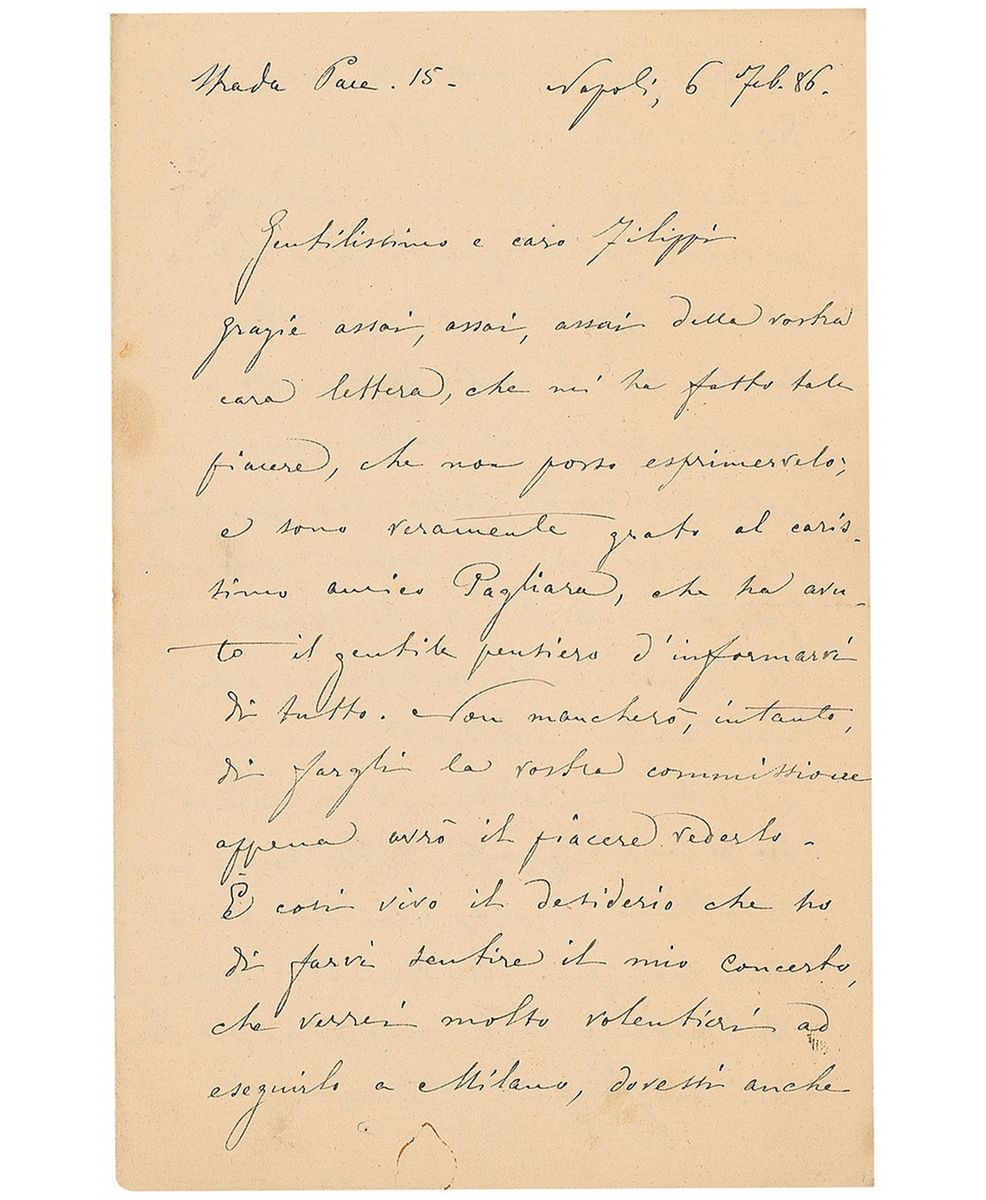 Strada Pace. 15-
Napoli, 6 Feb. 86.
Gentilissimo e caro Filippi
grazie assai, assai, assai della vostra
cara lettera, che mi ha fatto tale
piacere, che non posso esprimervelo;
e sono veramente grato al caris-
simo amico Pagliara, che ha avu-
to il gentile pensiero d'informarvi
di tutto. Non mancherò, intanto,
di fargli la vostra commissione
appena avrò il piacere vederlo -
È così vivo il desiderio che ho
di farvi sentire il mio concerto,
che verrei molto volentieri ad
eseguirlo a Milano, dovessi anche